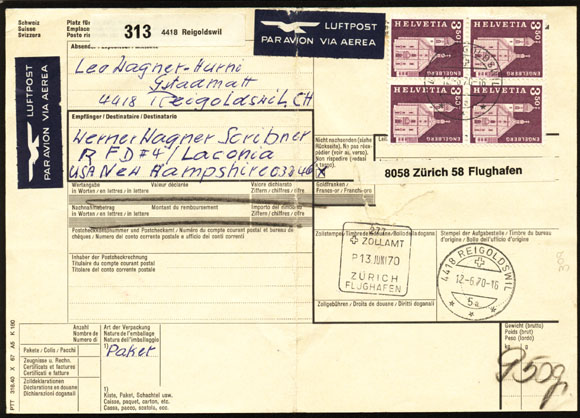 Schweiz
Suisse
Svizzera
313 4418 Reigoldswil
LUFTPOST
PAR AVION VIA AEREA
LUFTPOST
PAR AVION VIA AEREA
HELVETIA 350
ENGELBERG
HELVETIA 350
ENGELBERG
HELVETIA 350
ENGELBERG
HELVETIA 350
ENGELBERG
Leo Wagner-Hurni
4418 Reigoldswil, CH
Empfänger / Destinataire / Destinatario
Werner Wagner Scribner
R FD #4 / Laconia
USA New Hampshire 03246
Nicht nachsenden (siehe
Rückseite). Ne pas réex-
pédier (voir au verso).
Non rispedire (vedi a
8058 Zürich 58 Flughafen
Wertangabe Valeur déclarée Valore dichiarato
in Worten / en lettres / in lettere Ziffern / chiffres / cifre
Goldfranken /
Francs-or / Franchi-oro
Nachnahmebetrag Montant du remboursement Importo del rimborso
in Worten / en lettres / in lettere Ziffern / chiffres / cifre
Postcheckkontonummer und Postcheckamt / Numéro du compte courant postal et
bureau de chèques / N. del conto corrente postale e ufficio dei conti correnti
Inhaber der Postcheckrechnung
Titulaire du compte courant postal
Titolare del conto corrente postale
Zollstempel / Timbre de la douane / Bollo della dogana
277
ZOLLAMT
P 13. JUNI 70
ZÜRICH
FLUGHAFEN
Zollgebühren / Droits de douane / Diritti doganali
Stempel der Aufgabestelle / Timbre du bureau
d'origine / Bollo dell'ufficio d'origine
4418 REIGOLDSWIL
12-6.70-16
5a
Anzahl
Nombre de
Numero di
Art der Verpackung
Nature de l'emballage
Natura dell'imballaggio
1)
Paket
Pakete / Colis / Pacchi
Zeugnisse u. Rechn.
Certificats et factures
Certificati e fatture
Zolldeklarationen
Déclarations en douane
Dichiarazioni doganali
1)
Kiste, Paket, Schachtel usw.
Caisse, paquet, carton, etc.
Cassa, pacco, scatola, ecc.
Gewicht (brutto)
Poids (brut)
Peso (lordo)
kg
950g
PTT 318.40 X 67 A5 K 180